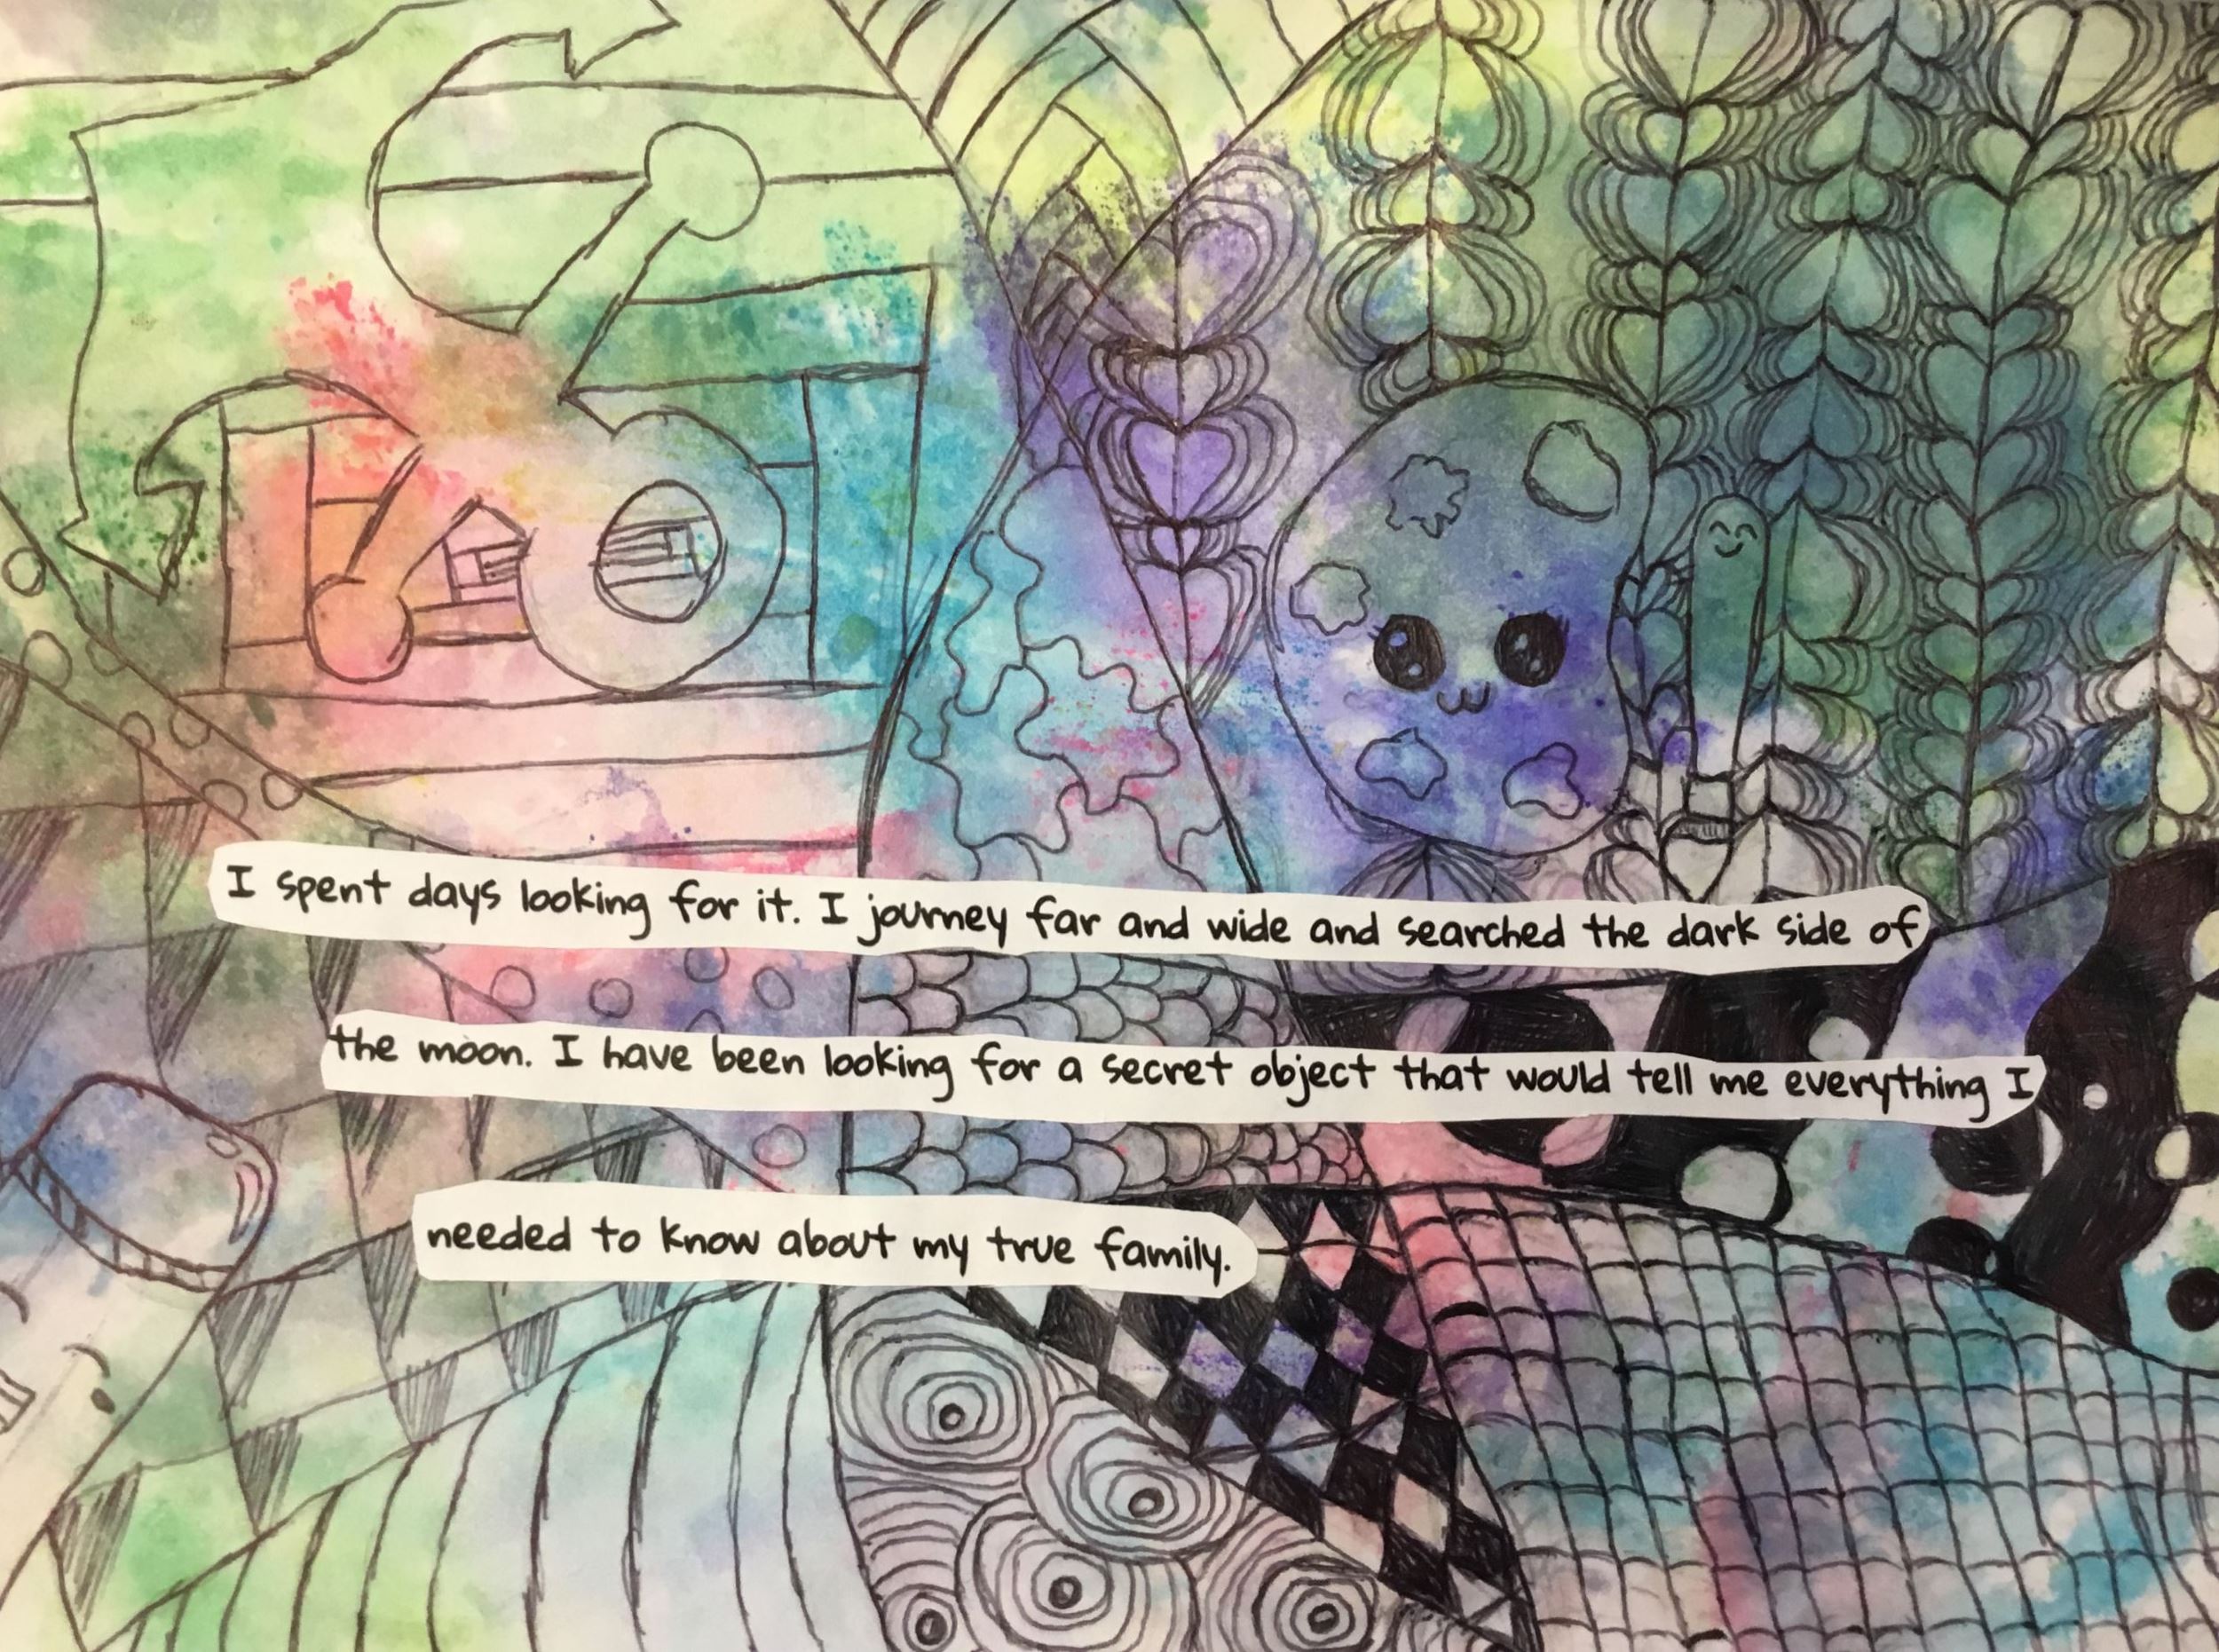 I spent days looking for it. I journey far and wide and searched the dark side of
the moon. I have been looking for a secret object that would tell me everything I
needed to know about my true family.